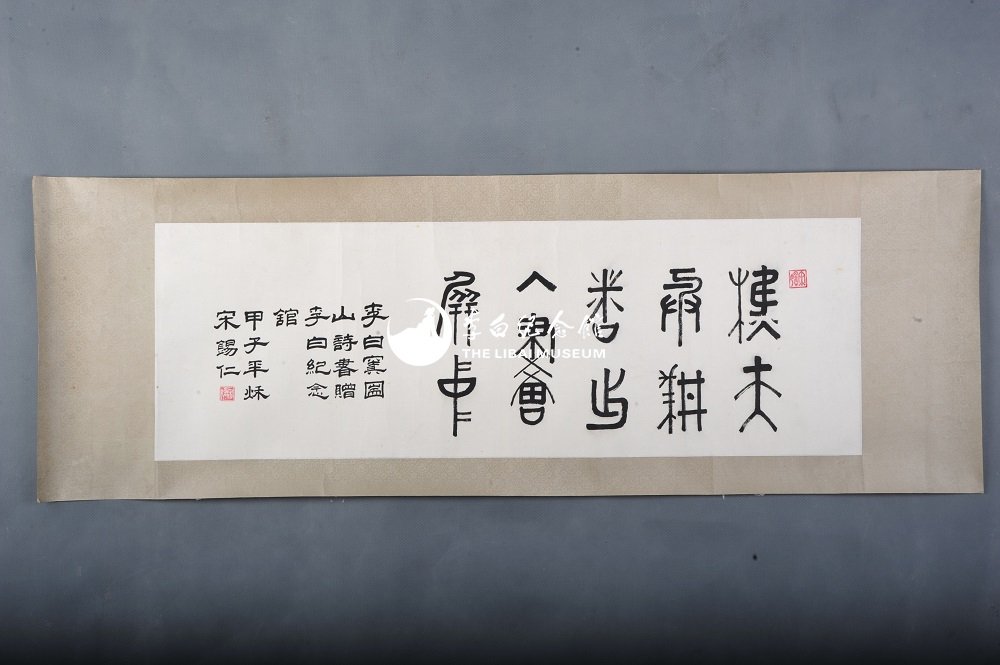 樵夫
與耕
者出
入畫
屏中
李白竇圌
山詩書贈
李白紀念
館
甲子年秌
宋錫仁
李白纪念馆
THE LIBAI MUSEUM